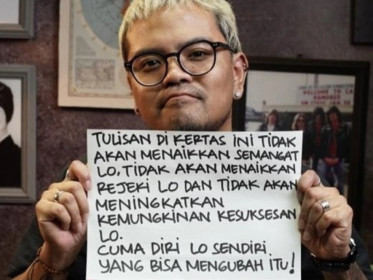 TULISAN DI KERTAS INI TIDAK
AKAN MENAIKKAN SEMANGAT
LO, TIDAK AKAN MENAIKKAN
REJEKI LO DAN TIDAK AKAN
MENINGKATKAN
KEMUNGKINAN KESUKSESAN
LO.
CUMA DIRI LO SENDIRI
YANG BISA MENGUBAH ITU!